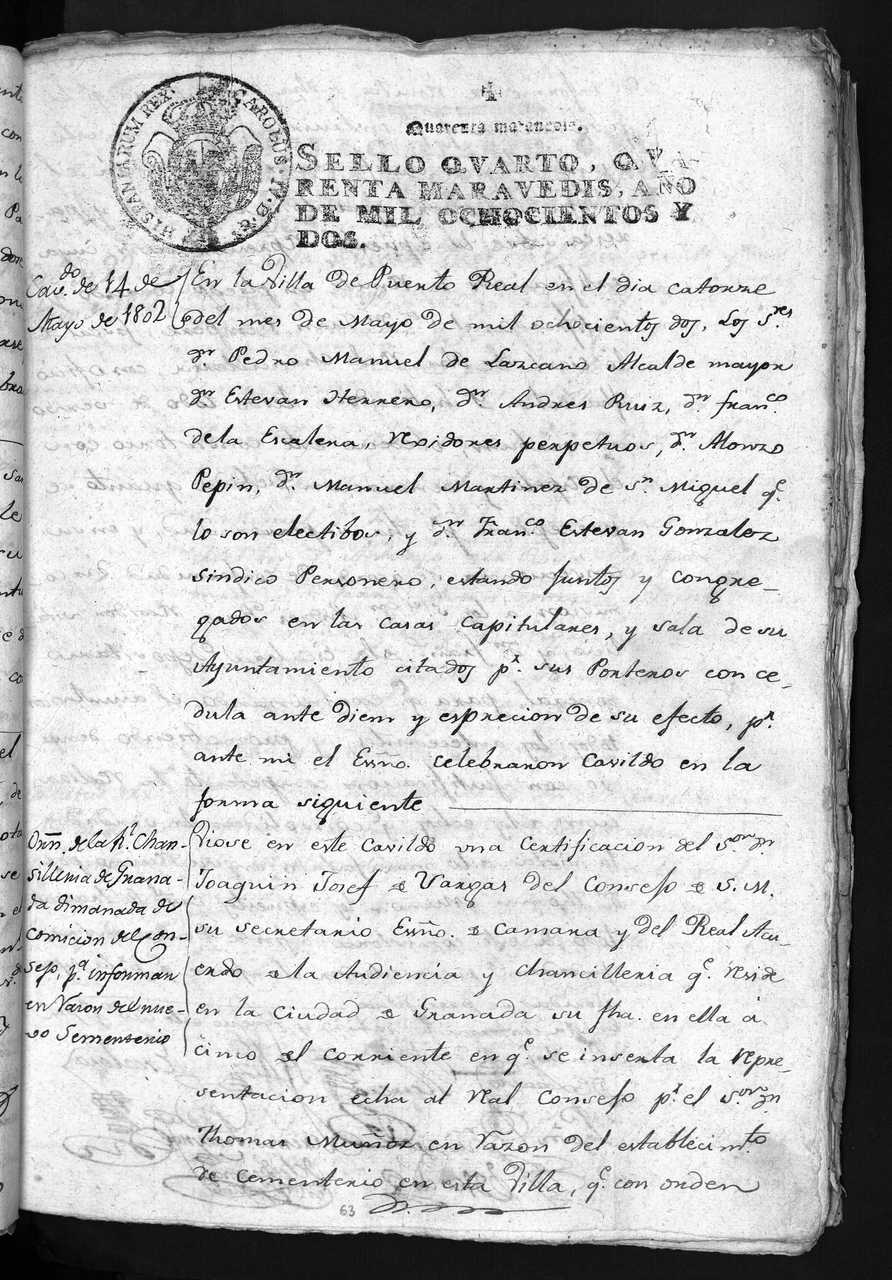 HISPANIARUM REX. CAROLUS IV D G
Quarenta maravedis.
SELLO QVARTO, QVA
RENTA MARAVEDIS, AÑO
DE MIL OCHOCIENTOS Y
DOS.
Cav.do de 14 de
Mayo de 1802
En la Villa de Puerto Real en el dia catorze
del mes de Mayo de mil ochocientos dos, Los S.res
d.n Pedro Manuel de Lazcano Alcalde mayor
d.n Estevan Herrero, d.n Andres Ruiz, d.n fran.co
dela Escalera, Rexidores perpetuos, d.n Alonzo
Pepin, d.n Manuel Martinez de S.n Miguel q.e
lo son electibos, y d.n Fran.co Estevan Gonzalez
sindico Personero, estando Juntos y congre-
gados en las casas capitulares, y sala de su
Ayuntamiento citados p.r sus Porteros con ce-
dula ante diem y esprecion de su efecto, p.r
ante mi el Essño. celebraron Cavildo en la
forma siguiente
Orñ. de la R.l Chan-
silleria de Grana-
da dimanada de
comicion del Con-
sejo, p.a informar
en Razon del nue-
vo Sementerio
Viose en este Cavildo una Certificacion del S.or d.n
Joaquin Josef de Vargas del Consejo de S. M.
su secretario Essño. de Camara y del Real Acu-
erdo de la Audiencia y Chancilleria q.e Reside
en la Ciudad de Granada su fha. en ella á
cinco del corriente en q.e se inserta la Repre-
sentacion echa al Real Consejo p.r el S.or d.n
Thomas Muñoz en Razon del establecim.to
de Cementerio en esta Villa, q.e con orden
63